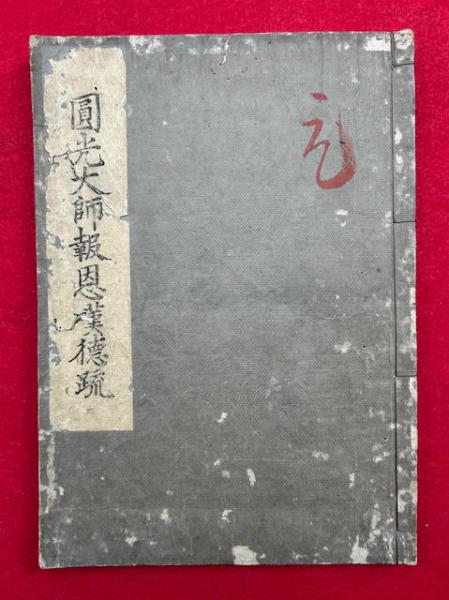 圓光大師報恩嘆德疏